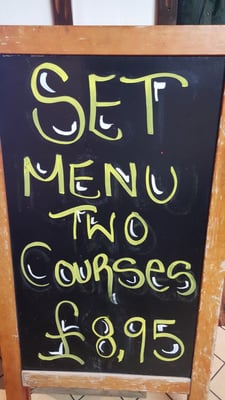 SET
MENU
TWO
Courses
£8,95